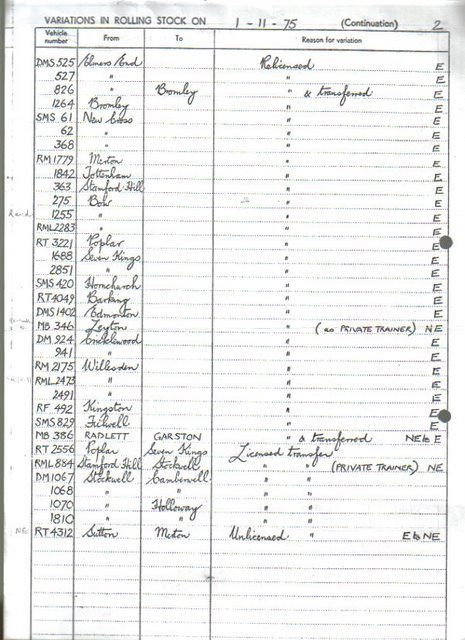 VARIATIONS IN ROLLING STOCK ON 1-11-75 (Continuation) 2
Vehicle number From To Reason for variation
DMS 525 Elmers End Relicensed E
527 " " E
826 " Bromley " & transferred E
1264 Bromley " E
SMS 61 New Cross " E
62 " " E
368 " " E
RM 1779 Merton " E
1842 Tottenham " E
363 Stamford Hill " E
275 Bow " E
1255 " " E
RML 2283 " " E
RT 3221 Poplar " E
1688 Seven Kings " E
2851 " " E
SMS 420 Hornchurch " E
RT 4049 Barking " E
DMS 1402 Edmonton " E
MB 346 Leyton " (as PRIVATE TRAINER) NE
DM 924 Cricklewood " E
941 " " E
RM 2175 Willesden " E
RML 2473 " " E
2491 " " E
RF 492 Kingston " E
SMS 829 Fulwell " E
MB 386 RADLETT GARSTON " & transferred NE to E
RT 2556 Poplar Seven Kings Licensed transfer
RML 884 Stamford Hill Stockwell " " (PRIVATE TRAINER) NE
DM 1067 Stockwell Camberwell " "
1068 " " " "
1070 " Holloway " "
1810 " " " "
NE RT 4312 Sutton Merton Unlicensed " E to NE